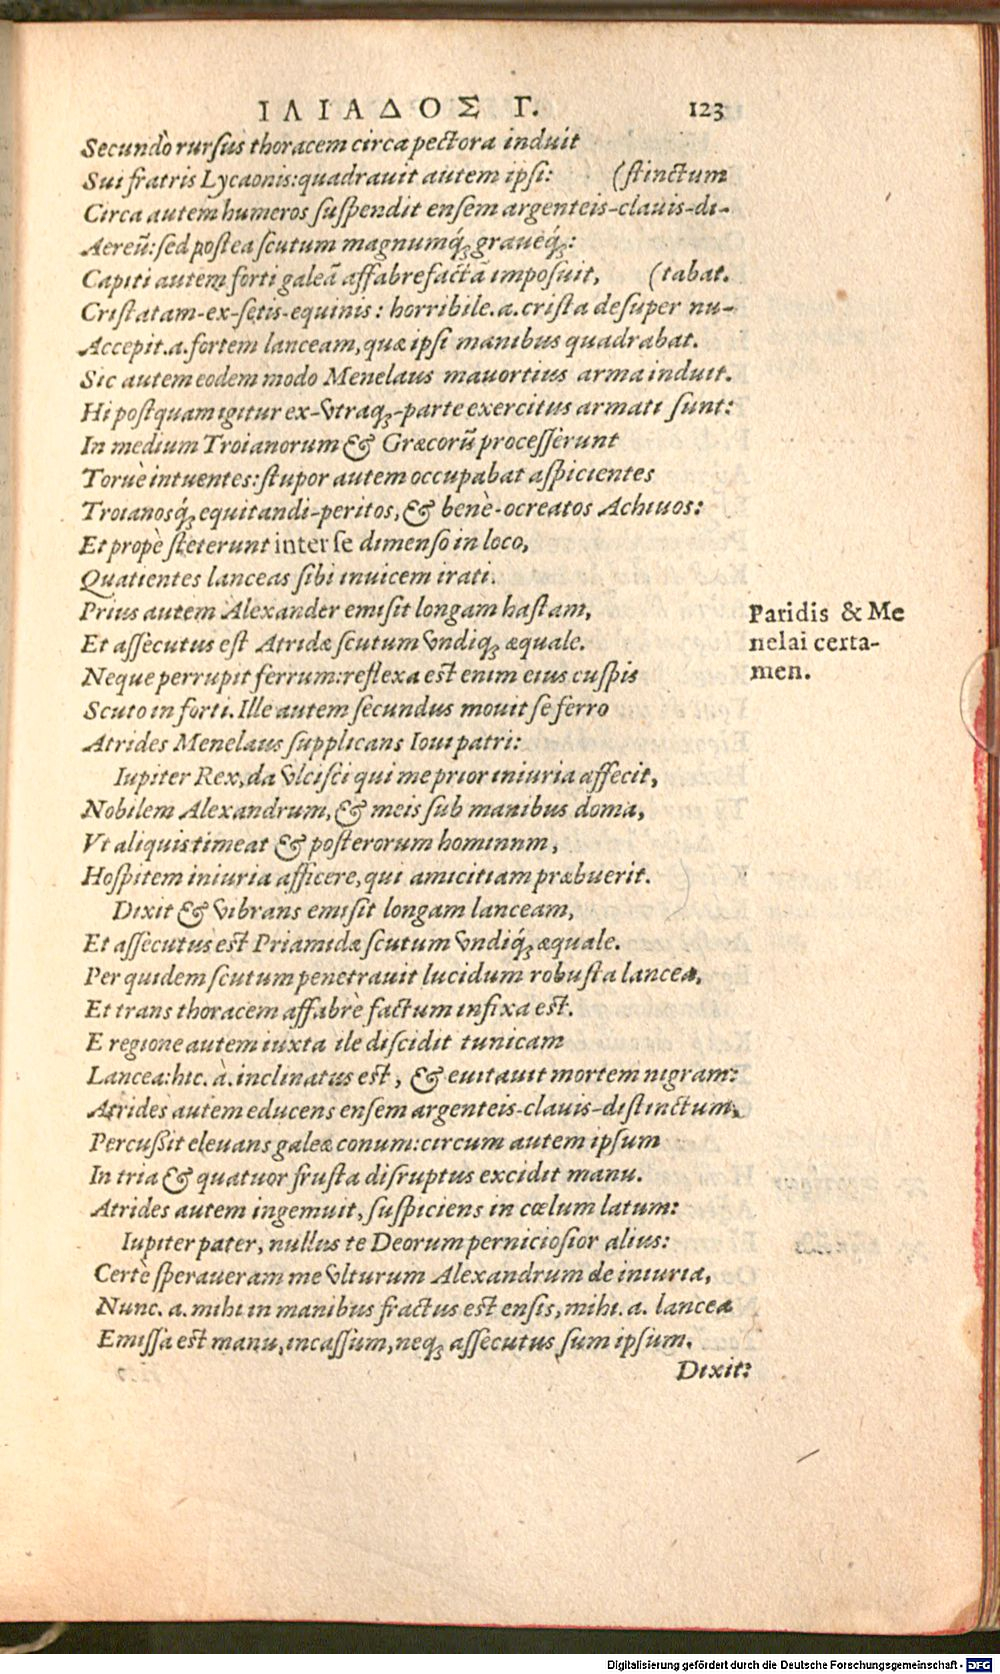 ΙΛΙΑΔΟΣ Γ. 123
Secundò rursus thoracem circa pectora induit
Sui fratris Lycaonis:quadrauit autem ipsi: (stinctum
Circa autem humeros suspendit ensem argenteis-clauis-di-
Aereū:sed postea scutum magnumq́; graueq́;:
Capiti autem forti galeā affabrefactā imposuit, (tabat.
Cristatam-ex-setis-equinis: horribile.a.crista desuper nu-
Accepit.a.fortem lanceam,quæ ipsi manibus quadrabat.
Sic autem eodem modo Menelaus mauortius arma induit.
Hi postquam igitur ex-vtraq;-parte exercitus armati sunt:
In medium Troianorum & Græcorū processerunt
Toruè intuentes:stupor autem occupabat aspicientes
Troianosq́; equitandi-peritos,& benè-ocreatos Achiuos:
Et propè steterunt inter se dimenso in loco,
Quatientes lanceas sibi inuicem irati.
Prius autem Alexander emisit longam hastam,
Et assecutus est Atridæ scutum vndiq; æquale.
Neque perrupit ferrum:reflexa est enim eius cuspis
Scuto in forti.Ille autem secundus mouit se ferro
Atrides Menelaus supplicans Ioui patri:
Iupiter Rex,da vlcisci qui me prior iniuria affecit,
Nobilem Alexandrum,& meis sub manibus doma,
Vt aliquis timeat & posterorum hominnm,
Hospitem iniuria afficere,qui amicitiam præbuerit.
Dixit & vibrans emisit longam lanceam,
Et assecutus est Priamidæ scutum vndiq́; æquale.
Per quidem scutum penetrauit lucidum robusta lancea,
Et trans thoracem affabrè factum infixa est.
E regione autem iuxta ile discidit tunicam
Lancea:hic. à.inclinatus est, & euitauit mortem nigram:
Atrides autem educens ensem argenteis-clauis-distinctum,
Percußit eleuans galeæ conum:circum autem ipsum
In tria & quatuor frusta disruptus excidit manu.
Atrides autem ingemuit,suspiciens in cœlum latum:
Iupiter pater, nullus te Deorum perniciosior alius:
Certè speraueram me vlturum Alexandrum de iniuria,
Nunc.a.mihi in manibus fractus est ensis,mihi.a. lancea
Emissa est manu,incassum,neq; assecutus sum ipsum.
Dixit:
Paridis & Me
nelai certa-
men.
Digitalisierung gefördert durch die Deutsche Forschungsgemeinschaft - DFG